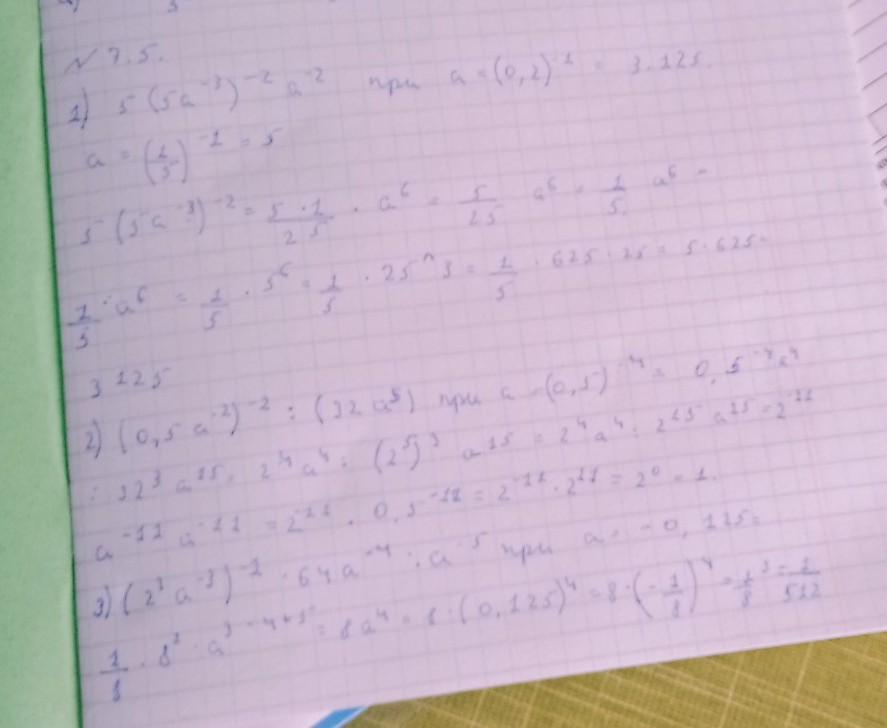 № 7.5.
1) 5(5a⁻³)⁻² a⁻² при a = (0,2)⁻¹ = 3.125.
a = (1/5)⁻¹ = 5
5(5a⁻³)⁻² = 5·1/25 · a⁶ = 5/25 a⁶ = 1/5 a⁶ =
1/5 · a⁶ = 1/5 · 5⁶ = 1/5 · 25^3 = 1/5 · 625 · 25 = 5·625=
3125
2) (0,5a⁻²)⁻² : (32a⁵) при a = (0,5)⁻⁴ = 0,5⁻⁴a⁴
: 32³ a¹⁵ = 2⁴a⁴ : (2⁵)³ a¹⁵ = 2⁴a⁴ : 2¹⁵ a¹⁵ = 2⁻¹¹
a⁻¹¹ a⁻¹¹ = 2⁻¹¹ · 0,5⁻¹¹ = 2⁻¹¹ · 2¹¹ = 2⁰ = 1.
3) (2³a⁻³)⁻¹ · 64a⁻⁴ : a⁻⁵ при a = -0,125=
1/8 · 8² · a³⁻⁴⁺⁵ = 8a⁴ = 8·(0,125)⁴ = 8·(-1/8)⁴ = 1/8³ = 1/512